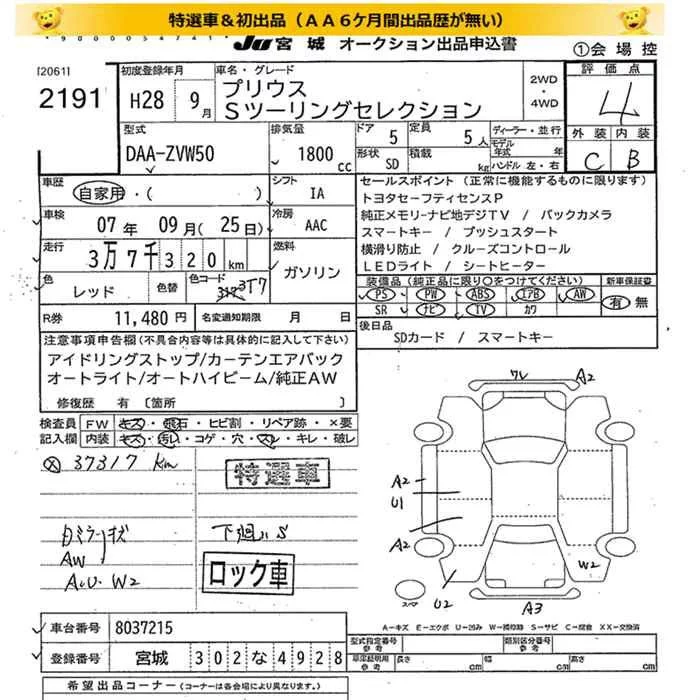 特選車＆初出品（ＡＡ６ケ月間出品歴が無い）
JU 宮城 オークション出品申込書
①会場控
[2061]
2191
初度登録年月
H28 9月
車名・グレード
プリウス
Ｓツーリングセレクション
2WD
・
4WD
評価点
4
外装 内装
C B
型式
DAA-ZVW50
排気量
1800 cc
ドア 5
定員 5人
形状 SD
積載 kg
ディーラー・並行
モデル年式 年
ハンドル 左・右
車歴
自家用・( )
シフト
IA
車検
07年 09月( 25日)
冷房
AAC
走行
3万7千320km
燃料
ガソリン
色
レッド
色替
色コード
317 3T7
R券 11,480円
名変通知期限 月 日
セールスポイント（正常に機能するものに限ります）
トヨタセーフティセンスＰ
純正メモリーナビ地デジＴＶ / バックカメラ
スマートキー / プッシュスタート
横滑り防止 / クルーズコントロール
ＬＥＤライト / シートヒーター
装備品（純正品に限り○をつけてください）
新車保証書
PS PW ABS エアB AW
SR ナビ TV カワ
有 無
後日品
SDカード / スマートキー
注意事項申告欄(不具合内容等は具体的に記入して下さい)
アイドリングストップ/カーテンエアバック
オートライト/オートハイビーム/純正ＡＷ
修復歴 有〔箇所 〕
検査員記入欄
FW キズ・飛石・ヒビ割・リペア跡・×要
内装 キズ・汚れ・コゲ・穴・スレ・キレ・破レ
37317 km
特選車
AW
W2
下廻り S
ロック車
ワレ A2
A2
U1
A2
W2
U2
A3
スペア
A－キズ E－エクボ U－凹み W－補修跡 S－サビ C－腐食 XX－交換済
車台番号 8037215
登録番号 宮城 302な4928
型式指定番号
参考
類別区分番号
参考
車庫証明用
参考
長さ cm
幅 cm
高さ cm
希望出品コーナー(コーナーは各会場により異なります。)